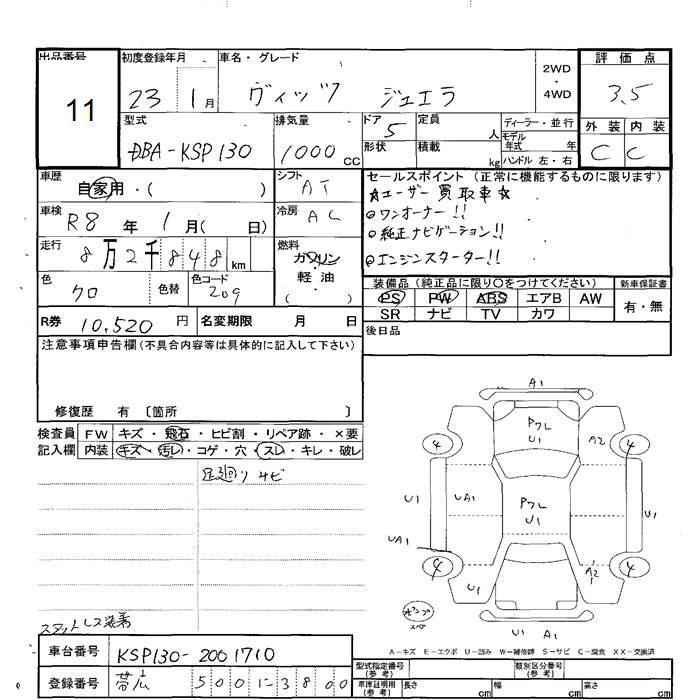 出品番号 初度登録年月 車名・グレード 2WD・4WD 評価点
11 23 1月 ヴィッツ ジュエラ 3.5
型式 排気量 ドア 定員 人 ディーラー・並行 外装 内装
DBA-KSP130 1000cc 5 形状 積載 kg モデル年式 年 ハンドル 左・右 C C
車歴 自家用・( ) シフト AT セールスポイント (正常に機能するものに限ります)
☆ユーザー買取車☆
車検 R8年 1月( 日) 冷房 AC ◎ワンオーナー!!
◎純正ナビゲーション!!
走行 8万2千848km 燃料 ガソリン・軽油・( ) ◎エンジンスターター!!
色 クロ 色替 色コード 209 装備品 (純正品に限り○をつけてください) 新車保証書
PS PW ABS エアB AW 有・無
SR ナビ TV カワ
R券 10,520円 名変期限 月 日 後日品
注意事項申告欄(不具合内容等は具体的に記入して下さい)
修復歴 有 〔箇所 〕
検査員 FW キズ・飛石・ヒビ割・リペア跡・×要
記入欄 内装 キズ・汚レ・コゲ・穴・スレ・キレ・破レ
足廻りサビ
A1
PワレU1 A2
4 4
U1 UA1 PワレU1 U1
UA1
4 U1 A2 4
パンク スペア
U1 A1
スタットレス装着
A-キズ E-エクボ U-凹み W-補修跡 S-サビ C-腐食 XX-交換済
車台番号 KSP130-2001710
型式指定番号(参考) 類別区分番号(参考)
登録番号 帯広 500
車庫証明用(参考) 長さ cm 幅 cm 高さ cm